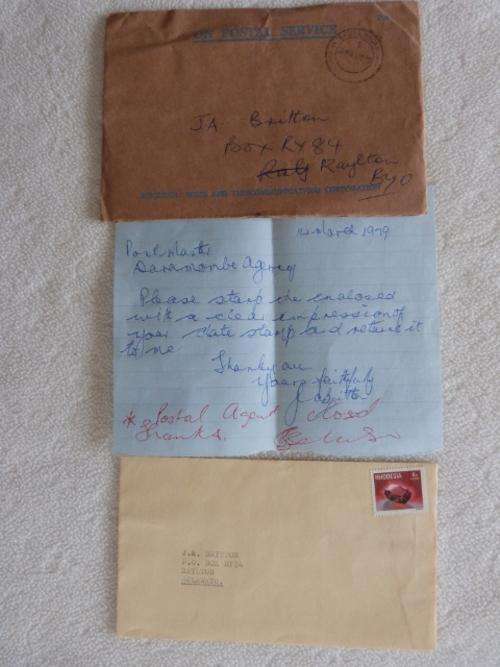 ON POSTAL SERVICE
J.A. Britton
Box RY 84
Raylton
BYO
POSTS AND TELECOMMUNICATIONS CORPORATION
March 1979
Post Master
Daramombe Agency
Please stamp the enclosed
with a clear impression of
your date stamp and return it
to me
Thank you
Yours faithfully
J Britton
* Postal Agent closed
Thanks.
RHODESIA
J.A. BRITTON
P.O. BOX RY84
RAYLTON
BULAWAYO.